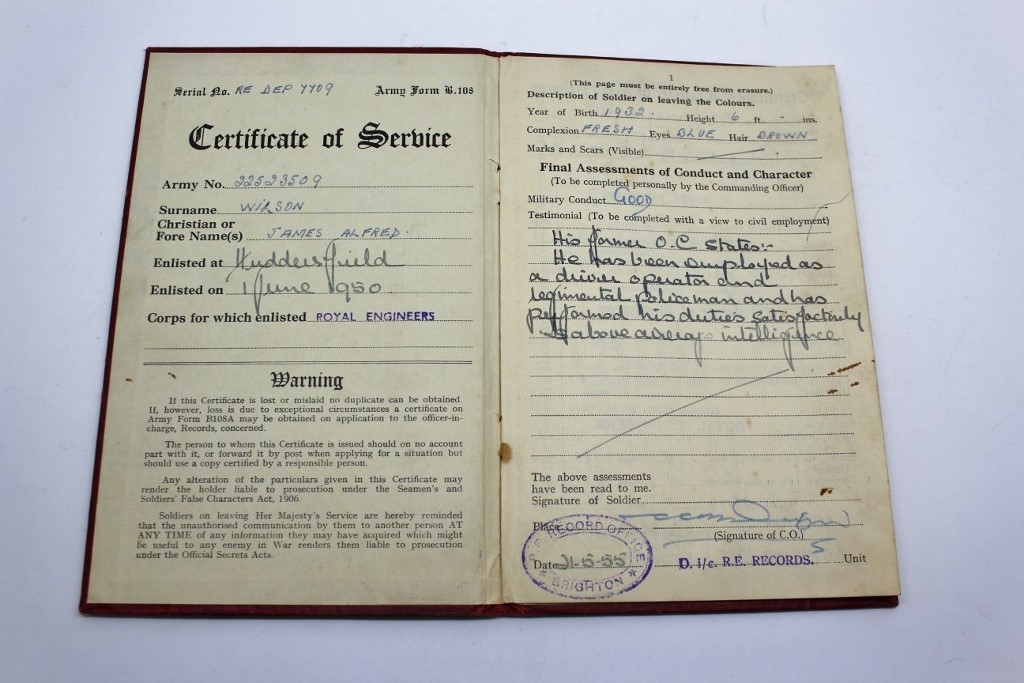 Serial No. RE DEP 7709 Army Form B.108
Certificate of Service
Army No. 22523509
Surname WILSON
Christian or
Fore Name(s) JAMES ALFRED.
Enlisted at Huddersfield
Enlisted on 1 June 1950.
Corps for which enlisted ROYAL ENGINEERS
Warning
If this Certificate is lost or mislaid no duplicate can be obtained.
If, however, loss is due to exceptional circumstances a certificate on
Army Form B108A may be obtained on application to the officer-in-
charge, Records, concerned.
The person to whom this Certificate is issued should on no account
part with it, or forward it by post when applying for a situation but
should use a copy certified by a responsible person.
Any alteration of the particulars given in this Certificate may
render the holder liable to prosecution under the Seamen's and
Soldiers' False Characters Act, 1906.
Soldiers on leaving Her Majesty's Service are hereby reminded
that the unauthorised communication by them to another person AT
ANY TIME of any information they may have acquired which might
be useful to any enemy in War renders them liable to prosecution
under the Official Secrets Acts.
1
(This page must be entirely free from erasure.)
Description of Soldier on leaving the Colours.
Year of Birth 1932. Height 6 ft. - ins.
Complexion FRESH Eyes BLUE Hair BROWN
Marks and Scars (Visible)
Final Assessments of Conduct and Character
(To be completed personally by the Commanding Officer)
Military Conduct GOOD
Testimonial (To be completed with a view to civil employment)
His former O.C States:-
He has been employed as
a driver operator and
regimental policeman and has
performed his duties satisfactorily
above average intelligence
The above assessments
have been read to me.
Signature of Soldier
Place
(Signature of C.O.)
Date 21-5-55 O. i/c. R.E. RECORDS. Unit
R.E. RECORD OFFICE
★ BRIGHTON ★